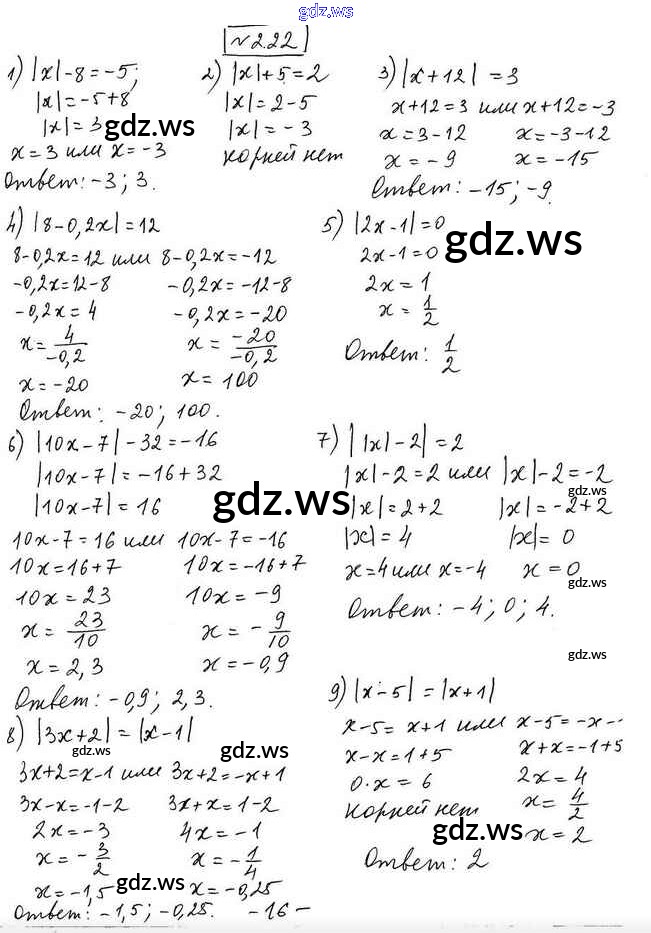 gdz.ws
№2.22
1) |x|-8=-5;
|x|=-5+8
|x|=3
x=3 или x=-3
Ответ: -3; 3.
2) |x|+5=2
|x|=2-5
|x|=-3
корней нет
3) |x+12|=3
x+12=3 или x+12=-3
x=3-12 x=-3-12
x=-9 x=-15
Ответ: -15; -9.
gdz.ws
4) |8-0,2x|=12
8-0,2x=12 или 8-0,2x=-12
-0,2x=12-8 -0,2x=-12-8
-0,2x=4 -0,2x=-20
x=4/-0,2 x=-20/-0,2
x=-20 x=100
Ответ: -20; 100.
5) |2x-1|=0
2x-1=0
2x=1
x=1/2
Ответ: 1/2
gdz.ws
6) |10x-7|-32=-16
|10x-7|=-16+32
|10x-7|=16
10x-7=16 или 10x-7=-16
10x=16+7 10x=-16+7
10x=23 10x=-9
x=23/10 x=-9/10
x=2,3 x=-0,9
Ответ: -0,9; 2,3.
gdz.ws
7) ||x|-2|=2
|x|-2=2 или |x|-2=-2
|x|=2+2 |x|=-2+2
|x|=4 |x|=0
x=4 или x=-4 x=0
Ответ: -4; 0; 4.
gdz.ws
gdz.ws
gdz.ws
8) |3x+2|=|x-1|
3x+2=x-1 или 3x+2=-x+1
3x-x=-1-2 3x+x=1-2
2x=-3 4x=-1
x=-3/2 x=-1/4
x=-1,5 x=-0,25
Ответ: -1,5; -0,25.
gdz.ws
gdz.ws
gdz.ws
9) |x-5|=|x+1|
x-5=x+1 или x-5=-x-
x-x=1+5 x+x=-1+5
0·x=6 2x=4
корней нет x=4/2
x=2
Ответ: 2
gdz.ws
-16-